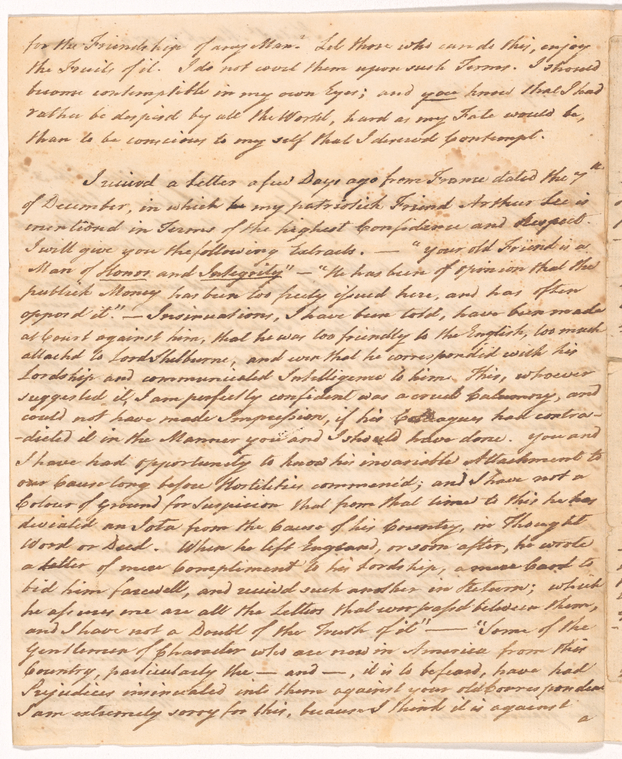 for the Friendship of any Man. Let those who can do this, enjoy
the Fruits of it. I do not covet them upon such Terms. I should
become contemptible in my own Eyes; and you know that I had
rather be despisd by all the World, hard as my Fate would be,
than to be conscious to my self that I deservd Contempt.
I receivd a Letter a few Days ago from France dated the 7th
of December, in which my patriotick Friend Arthur Lee is
mentiond in Terms of the highest Confidence and Respect.
I will give you the following Extracts. — "your old Friend is a
Man of Honor and Integrity" — "He has been of Opinion that the
publick Money has been too freely issued here, and has often
opposd it" — Insinuations, I have been told, have been made
at Court against him, that he was too friendly to the English, too much
attachd to Lord Shelburne, and even that he corresponded with his
Lordship and communicated Intelligence to him. This, whoever
suggested it, I am perfectly confident was a cruel Calumny, and
could not have made Impression, if his Colleagues had contra-
-dicted it in the Manner you and I should have done. You and
I have had opportunity to know his invariable Attachment to
our Cause long before Hostilities commencd; and I have not a
Colour of Ground for Suspicion that from that time to this he has
deviated an Iota from the Cause of his Country, in Thought
Word or Deed. When he left England, or soon after, he wrote
a Letter of mere Compliment to his Lordship, a mere Card to
bid him farewell, and receivd such another in Return; which
he assures me are all the Letters that ever passd between them,
and I have not a Doubt of the Truth of it" — "Some of the
Gentlemen of Character who are now in America from this
Country, particularly the — and —, it is to be feard, have had
Prejudices insinuated into them against your old Correspondent
I am extremely sorry for this, because I think it is against
a